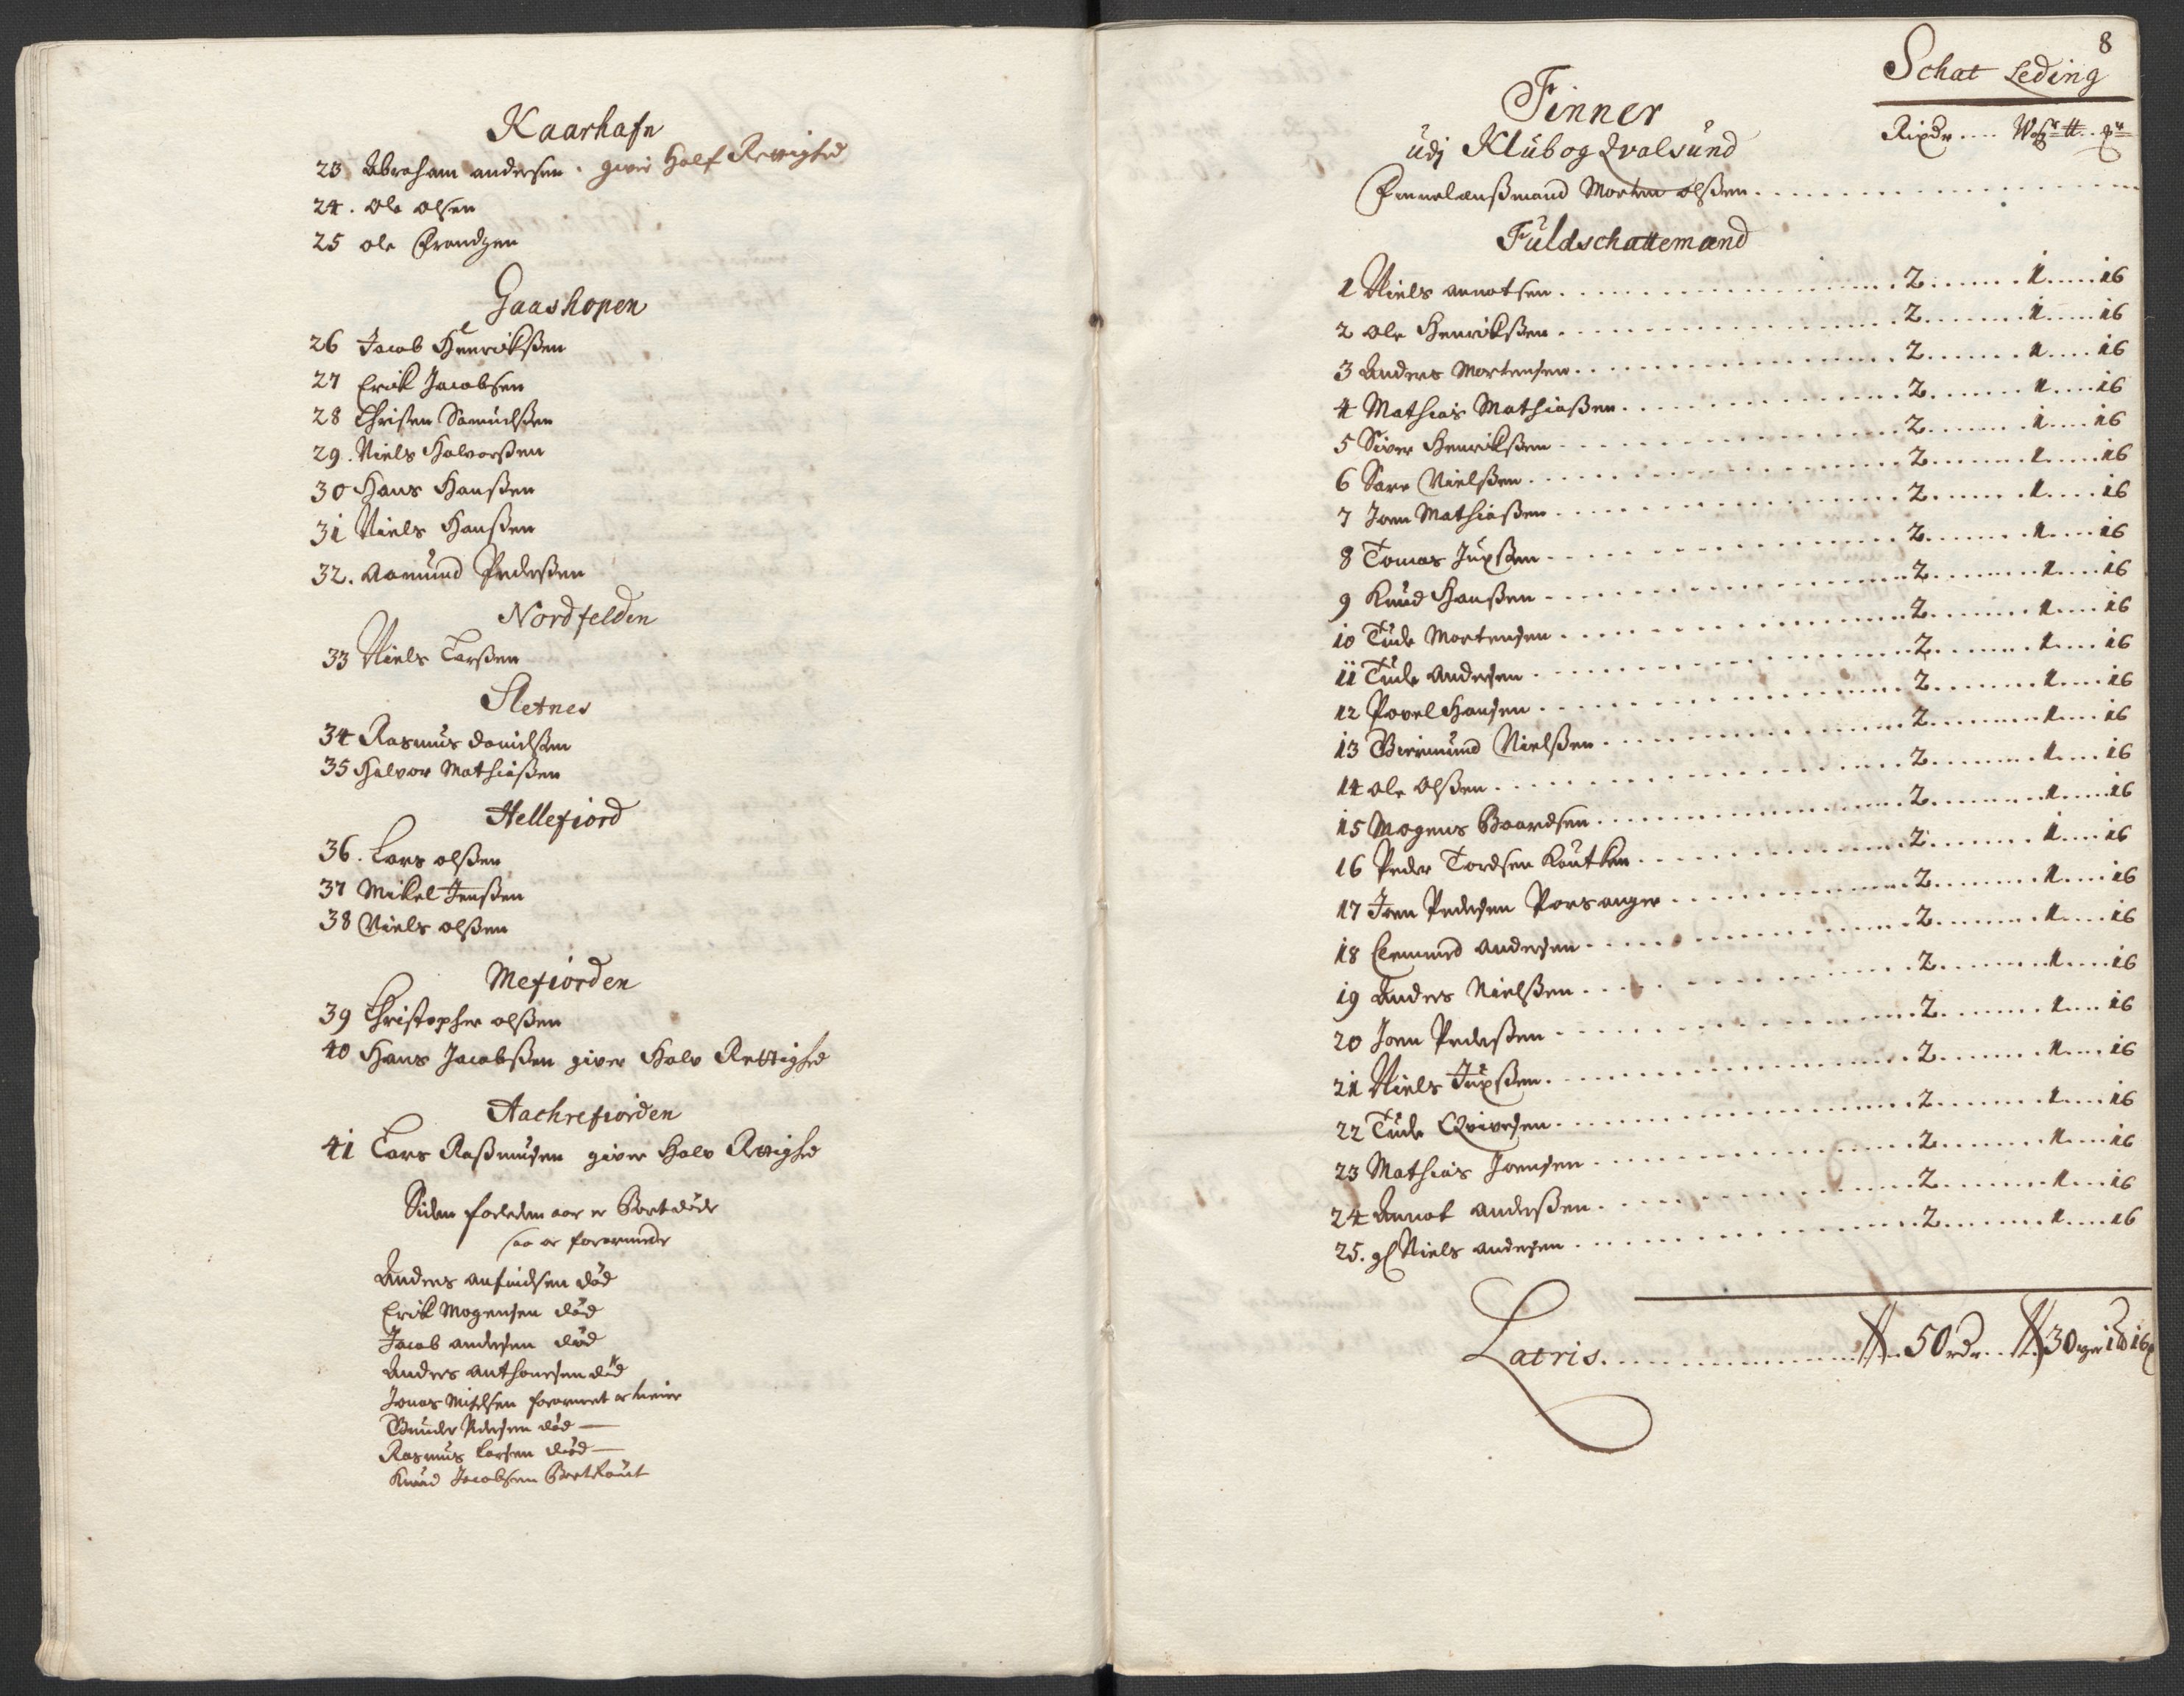 Kaarhafn
23 Abraham andersen. giver Half Rettighed
24. Ole olsen
25 ole Frandzen
Gaashopen
26 Jacob Henrikßen
27 Erik Jacobsen
28 Christen Samuelßen
29. Niels Halvorßen
30 Hans Hanßen
31 Niels Hanßen
32. Aamund Pederßen
Nordfelden
33 Niels Larßen
Sletnes
34 Rasmus danielßen
35 Halvor Mathiaßen
Hellefiord
36. Lars olßen
37 Mikel Jenßen
38 Niels olßen
Mefiorden
39 Christopher olßen
40 Hans Jacobßen giver Halv Rettighd
Aachrefiorden
41 Lars Raßmusen giver Halv Rettighd
Siden forleden aar er Bortdöde
saa or forarmede
Anders anfindsen död
Erik Mogensen död
Jacob andersen död
Anders anthonesen död
Jonas Mikelsen forarmet
Gunder Pedersen död —
Rasmus Larsen död —
Knud Jacobsen Bortkout
8
Schat Leding
Finner
udj Klub og Qvalsund
Rixdr .... Wog tt
Finnelanßmand Morten olßen
Fuldschattemænd
1 Niels amotsen . . . 2 . . . 1 . . . 16
2 Ole Henrikßen . . . 2 . . . 1 . . . 16
3 Anders Mortensen . . . 2 . . . 1 . . . 16
4 Mathias Mathiaßen . . . 2 . . . 1 . . . 16
5 Siver Henrikßen . . . 2 . . . 1 . . . 16
6 Sare Nielßen . . . 2 . . . 1 . . . 16
7 Joen Mathiaßen . . . 2 . . . 1 . . . 16
8 Tomas Jupßen . . . 2 . . . 1 . . . 16
9 Knud Hanßen . . . 2 . . . 1 . . . 16
10 Tude Mortensen . . . 2 . . . 1 . . . 16
11 Tude Andersen . . . 2 . . . 1 . . . 16
12 Povel Hansen . . . 2 . . . 1 . . . 16
13 Guermund Nielßen . . . 2 . . . 1 . . . 16
14 Ole olßen . . . 2 . . . 1 . . . 16
15 Mogens Baardsen . . . 2 . . . 1 . . . 16
16 Peder Tordsen Koutken . . . 2 . . . 1 . . . 16
17 Joen Pedersen Porsanger . . . 2 . . . 1 . . . 16
18 Clemmed andersen . . . 2 . . . 1 . . . 16
19 Anders Nielßen . . . 2 . . . 1 . . . 16
20 Joen Pederßen . . . 2 . . . 1 . . . 16
21 Niels Jupßen . . . 2 . . . 1 . . . 16
22 Tude Qvivesen . . . 2 . . . 1 . . . 16
23 Mathias Joensen . . . 2 . . . 1 . . . 16
24 Amot anderßen . . . 2 . . . 1 . . . 16
25. gl Niels andersen . . . 2 . . . 1 . . . 16
Latris . . . 50 rdr . . . 30 1 16